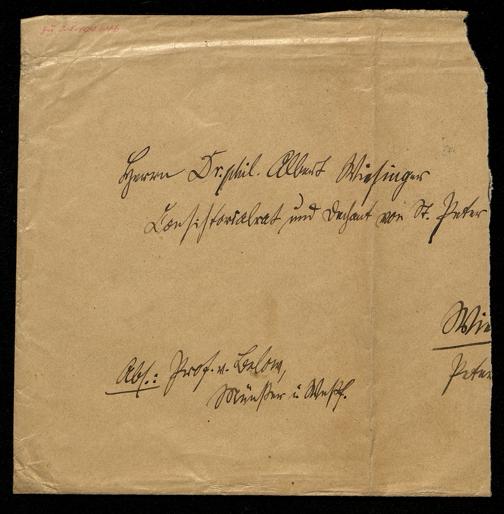 Herrn Dr. phil. Albert Wiesinger
Consistorialrat und Dechant von St. Peter
Wie
Peter
Abs.: Prof. v. Below,
Münster i Westf.